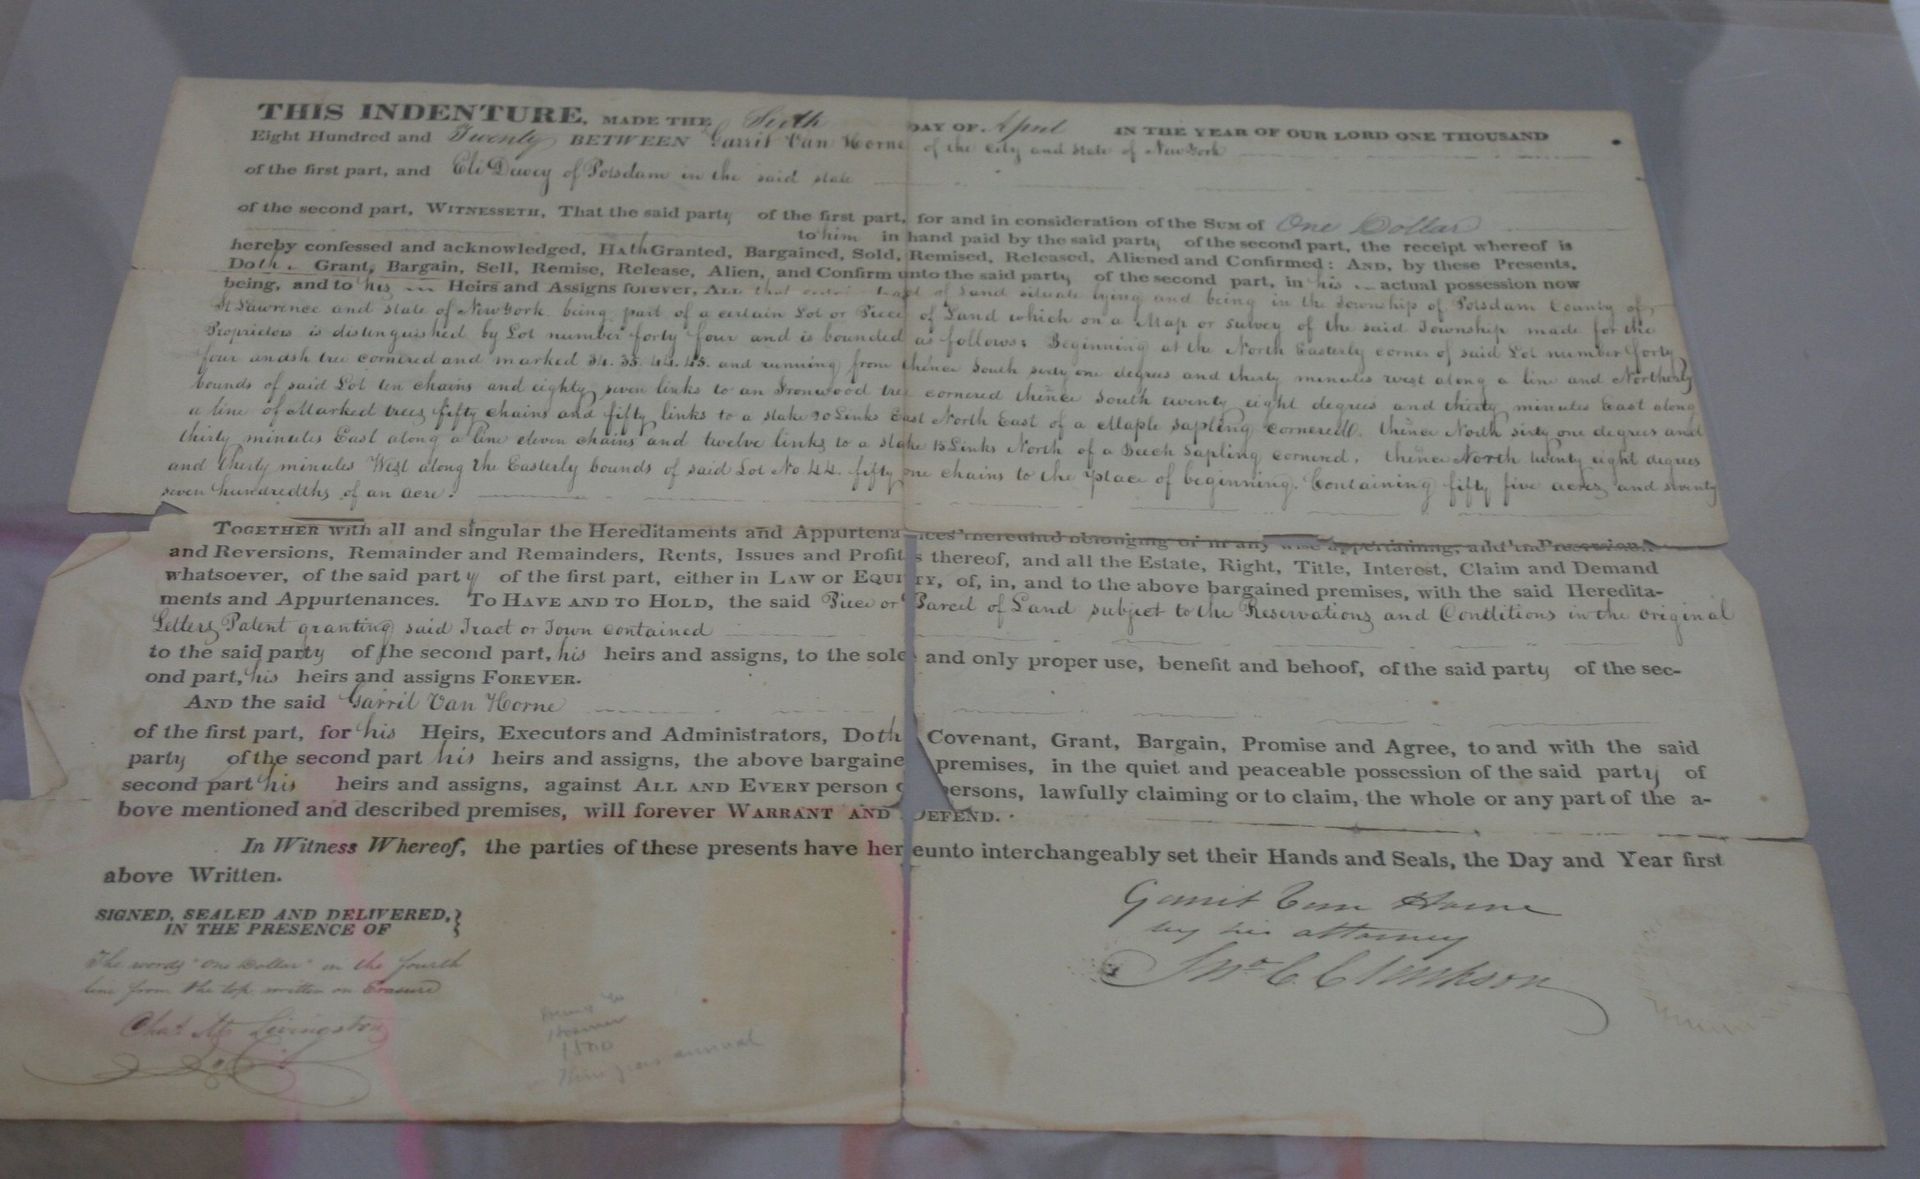 THIS INDENTURE, MADE THE Sixth DAY OF April IN THE YEAR OF OUR LORD ONE THOUSAND
Eight Hundred and Twenty BETWEEN Garrit Van Horne of the City and State of New York
of the first part, and Eli Dewey of Potsdam in the said state
of the second part, WITNESSETH, That the said party of the first part, for and in consideration of the SUM of One Dollar
to him in hand paid by the said party of the second part, the receipt whereof is
hereby confessed and acknowledged, Hath Granted, Bargained, Sold, Remised, Released, Aliened and Confirmed: AND, by these Presents,
Doth Grant, Bargain, Sell, Remise, Release, Alien, and Confirm unto the said party of the second part, in his actual possession now
being, and to his Heirs and Assigns forever, ALL that of Land situate lying and being in the Township of Potsdam County of
St Lawrence and state of New York being part of a certain Lot or Piece of Land which on a Map or survey of the said Township made for the
Proprietors is distinguished by Lot number forty four and is bounded as follows: Beginning at the North Easterly corner of said Lot number forty
four tree cornered and marked 34. 35. 44. 45. and running from thence South sixty one degrees and thirty minutes west along a line and Northerly
bounds of said Lot ten chains and eighty seven links to an Ironwood tree cornered thence South twenty eight degrees and thirty minutes East along
a line of Marked trees fifty chains and fifty links to a stake 20 Links East North East of a Maple sapling cornered. thence North sixty one degrees and
thirty minutes East along a line eleven chains and twelve links to a stake 15 Links North of a Beech Sapling cornered. thence North twenty eight degrees
and thirty minutes West along the Easterly bounds of said Lot No. 44. fifty one chains to the place of beginning. Containing fifty five acres and seventy
seven hundredths of an acre.
TOGETHER with all and singular the Hereditaments and Appurtenances thereunto belonging or in any wise appertaining, and the Reversion
and Reversions, Remainder and Remainders, Rents, Issues and Profits thereof, and all the Estate, Right, Title, Interest, Claim and Demand
whatsoever, of the said party of the first part, either in LAW OR EQUITY, of, in, and to the above bargained premises, with the said Heredita-
ments and Appurtenances. TO HAVE AND TO HOLD, the said Piece or Parcel of Land subject to the Reservations and Conditions in the original
Letters Patent granting said Tract or Town contained
to the said party of the second part, his heirs and assigns, to the sole and only proper use, benefit and behoof, of the said party of the sec-
ond part, his heirs and assigns FOREVER.
AND the said Garrit Van Horne
of the first part, for his Heirs, Executors and Administrators, Doth Covenant, Grant, Bargain, Promise and Agree, to and with the said
party of the second part his heirs and assigns, the above bargained premises, in the quiet and peaceable possession of the said party of
second part his heirs and assigns, against ALL AND EVERY person persons, lawfully claiming or to claim, the whole or any part of the a-
bove mentioned and described premises, will forever WARRANT AND DEFEND.
In Witness Whereof, the parties of these presents have hereunto interchangeably set their Hands and Seals, the Day and Year first
above Written.
SIGNED, SEALED AND DELIVERED,
IN THE PRESENCE OF
The words "One Dollar" in the fourth
line from the top written on Erasure
Chas. Livingston
Garrit Van Horne
by his attorney
Jno. C. Clarkson